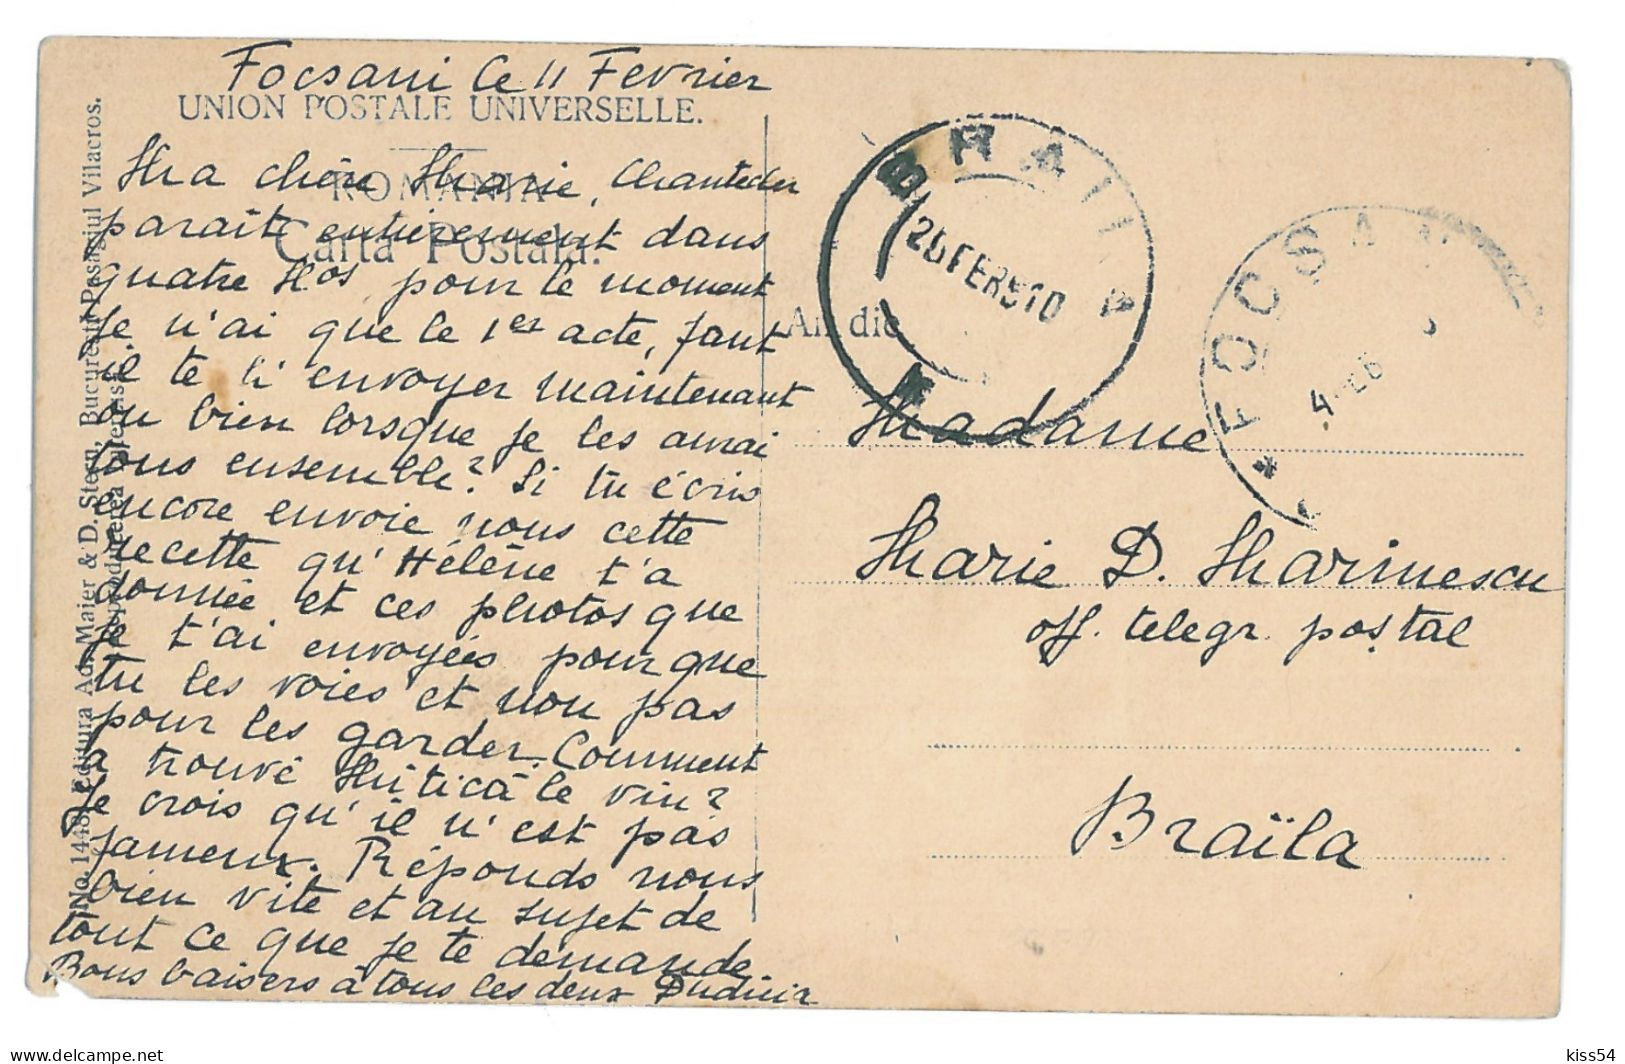 Focsani Ce 11 Fevrier
UNION POSTALE UNIVERSELLE.
ROMANIA
Carta Postala.
Ma chère Marie, Chantecler
paraît entièrement dans
quatre Nos pour le moment
je n'ai que le 1er acte, faut
il te l'envoyer maintenant
ou bien lorsque je les aurai
tous ensemble? Si tu écris
encore envoie nous cette
recette qu'Hélène t'a
donnée et ces photos que
je t'ai envoyées pour que
tu les voies et non pas
pour les garder. Comment
a trouvé Mitică le vin?
Je crois qu'il n'est pas
fameux. Réponds nous
bien vite et au sujet de
tout ce que je te demande
Bons baisers à tous les deux
No. 1448. Editura Ad. Maier & D. Stern, București Pasagiul Vilacros.
Reproducerea interzisă
BRAILA
FOCSANI
Madame
Marie D. Marinescu
off. telegr. postal
Braïla
kiss54